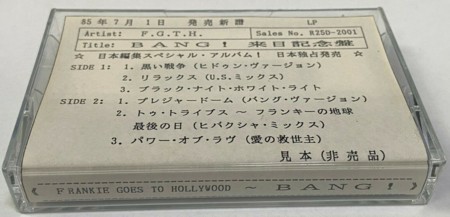 85年7月1日 発売新譜 LP
Artist: F.G.T.H. Sales No. R25D-2001
Title: BANG! 来日記念盤
☆ 日本編集スペシャル・アルバム! 日本独占発売 ☆
SIDE 1: 1. 黒い戦争 (ヒドゥン・ヴァージョン)
2. リラックス (U.S.ミックス)
3. ブラック・ナイト・ホワイト・ライト
SIDE 2: 1. プレジャードーム (バング・ヴァージョン)
2. トゥ・トライブス ~ フランキーの地球
最後の日 (ヒバクシャ・ミックス)
3. パワー・オブ・ラヴ (愛の救世主)
見本 (非売品)
《 FRANKIE GOES TO HOLLYWOOD ~ BANG! 》